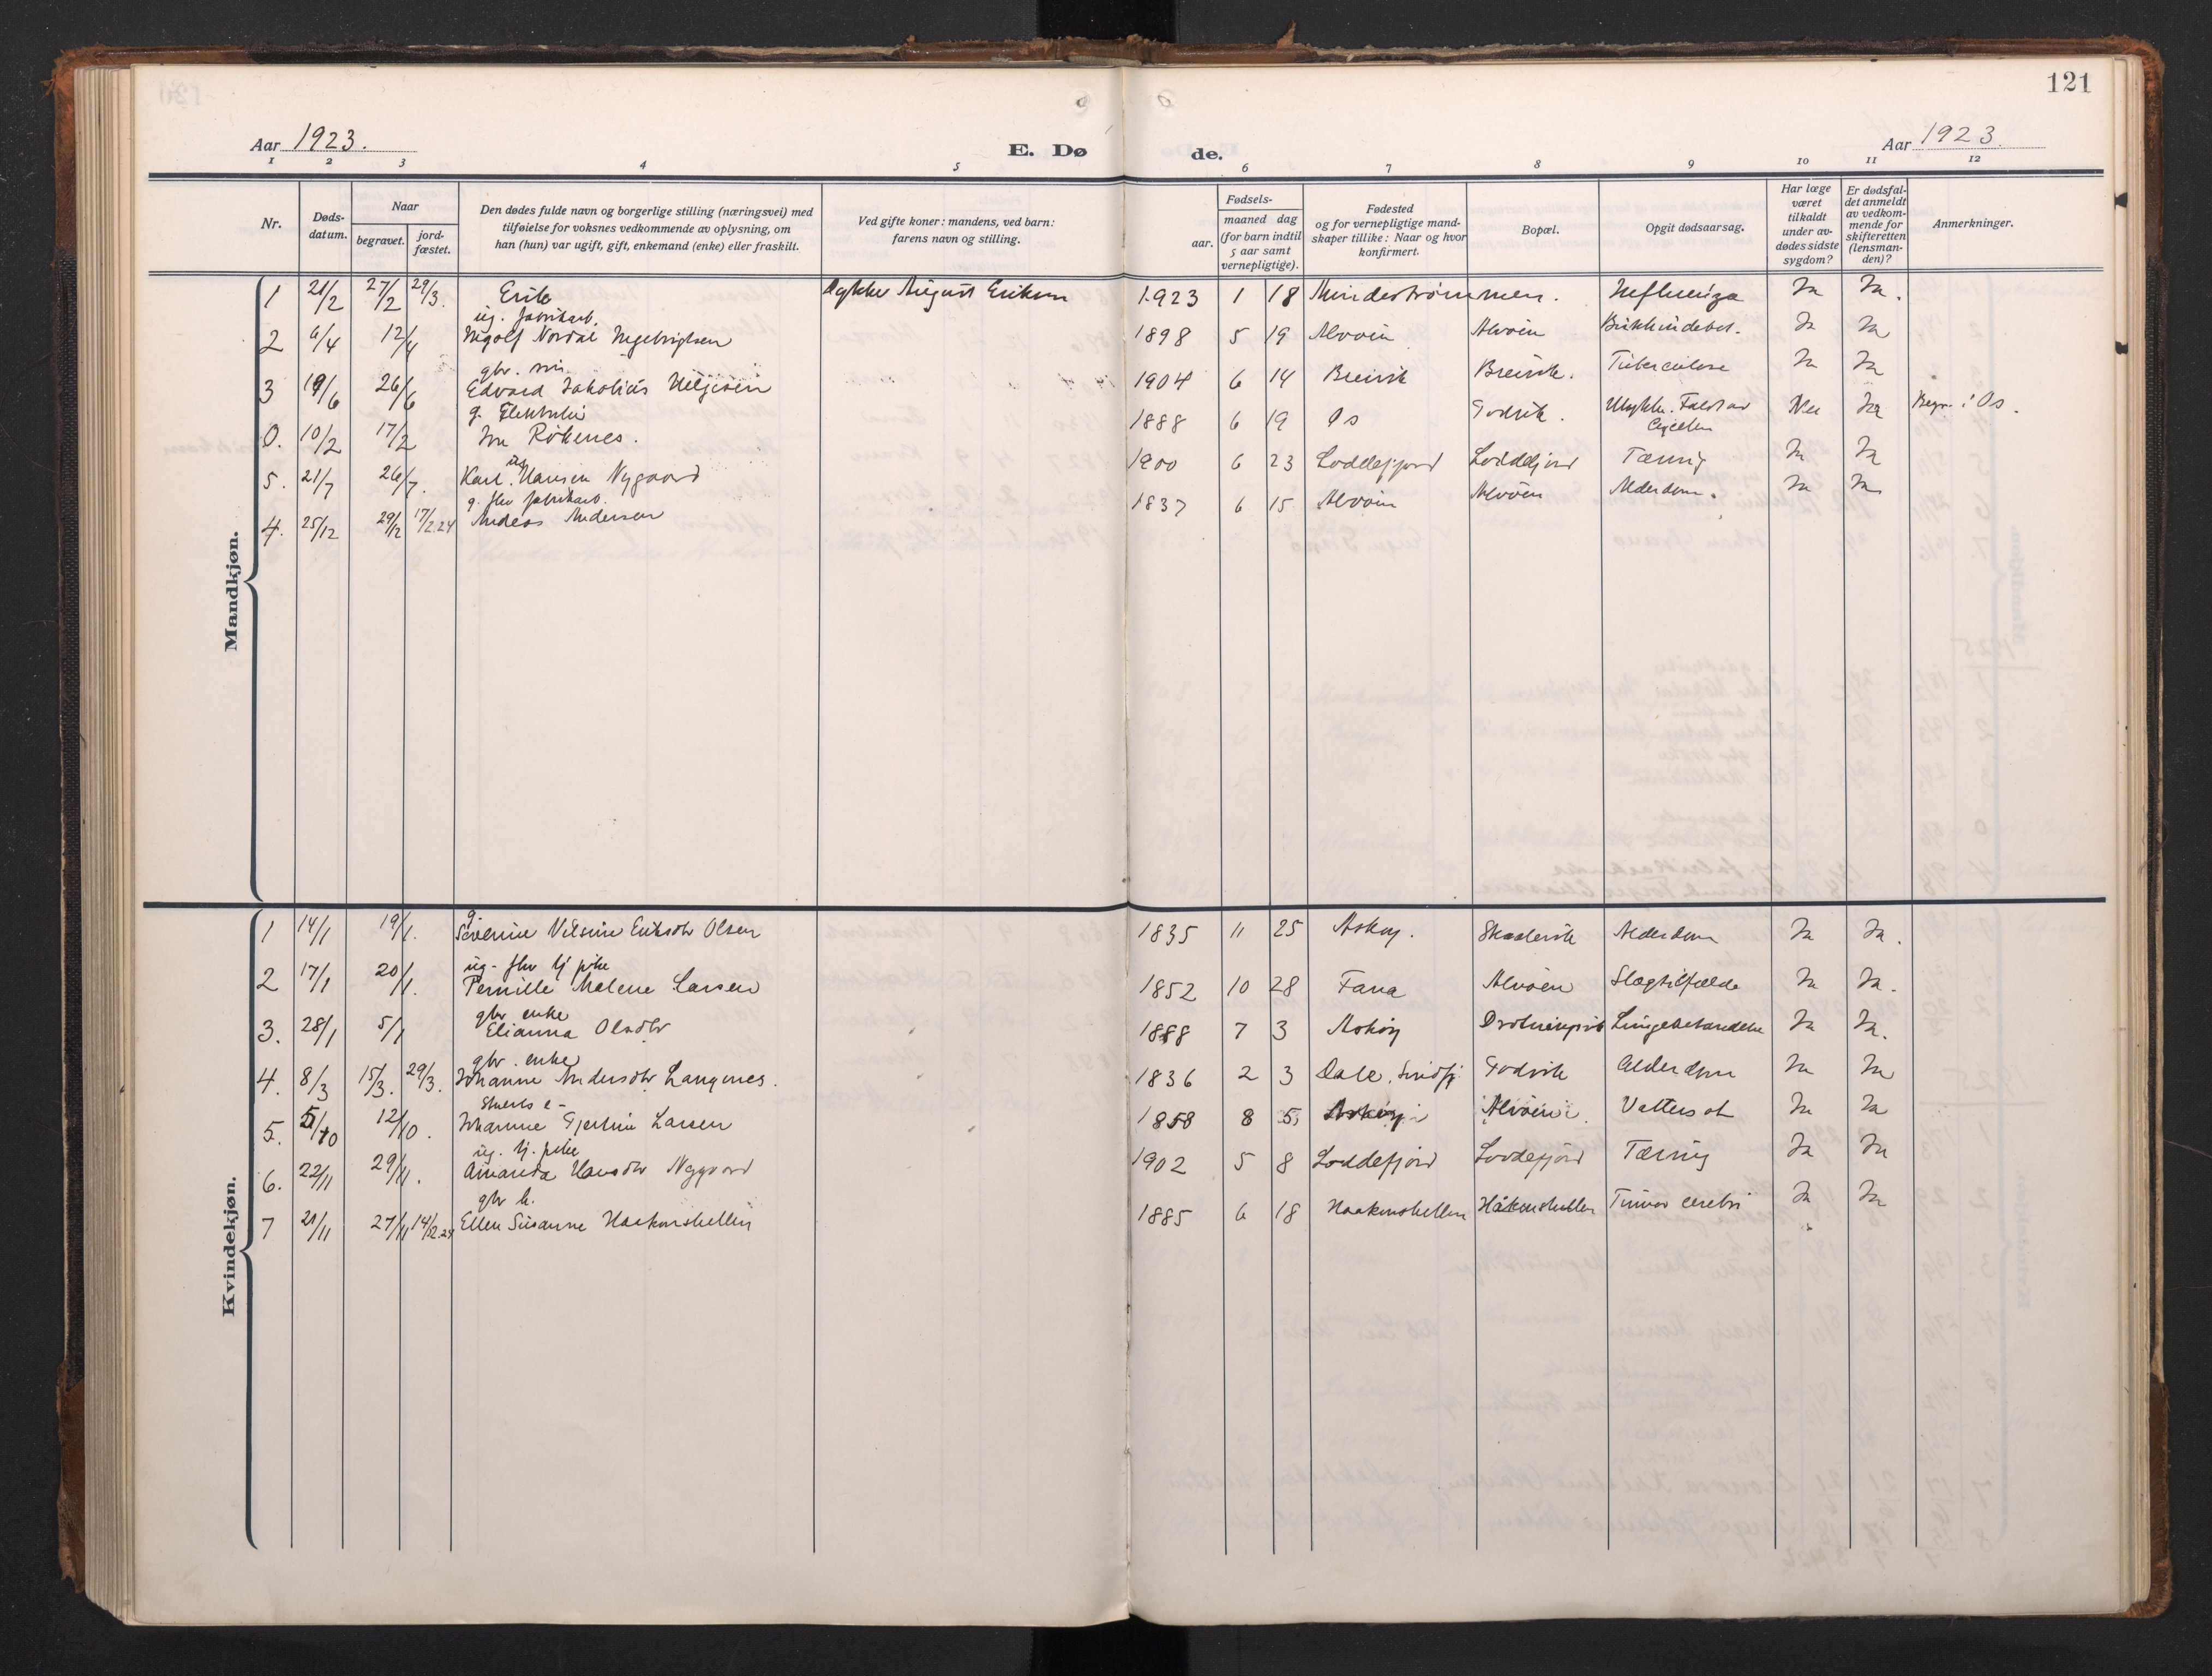 121
Aar 1923.
E. Dø de.
Aar 1923.
1 2 3 4 5 6 7 8 9 10 11 12
Nr.
Døds-
datum.
Naar
begravet.
jord-
fæstet.
Den dødes fulde navn og borgerlige stilling (næringsvei) med
tilføielse for voksnes vedkommende av oplysning, om
han (hun) var ugift, gift, enkemand (enke) eller fraskilt.
Ved gifte koner: mandens, ved barn:
farens navn og stilling.
Fødsels-
aar.
maaned dag
(for barn indtil
5 aar samt
vernepligtige).
Fødested
og for vernepligtige mand-
skaper tillike: Naar og hvor
konfirmert.
Bopæl.
Opgit dødsaarsag.
Har læge
været
tilkaldt
under av-
dødes sidste
sygdom?
Er dødsfal-
det anmeldt
av vedkom-
mende for
skifteretten
(lensman-
den)?
Anmerkninger.
Mandkjøn.
1 21/2 27/2 29/3. Erik August Eriksen 1923 1 18 Influenza Ja Ja.
ug. fabrikarb.
2 6/4 12/4 Ingolf Nordal Ingebrigtsen 1898 5 19 Alvøen Alvøen Ja Ja
gbr. søn
3 19/6 26/6 Edvard Jakobius Helgesen 1904 6 14 Breivik Breivik. Tuberculose Ja Ja
g.
0. 10/2 17/2 Røkenes. 1888 6 19 Os Godvik. Ulykke. Fald av Nei Ja Begr. i Os.
Cyclen
ug
5. 21/7 26/7. Karl Hansen Nygaard 1900 6 23 Loddefjord Loddefjord Tæring Ja Ja
g. fhv fabrikarb.
4. 25/12 29/12 17/2.24 Andeas Andersen 1837 6 15 Alvøen Alvøen Alderdom. Ja Ja
Kvindekjøn.
g.
1 14/1 19/1. Severine Nilsine Eriksdtr Olsen 1835 11 25 Askøy. Alderdom Ja Ja.
ug. fhv tj pike
2 17/1 20/1. Pernille Malene Larsen 1852 10 28 Fana Alvøen Slagtilfælde Ja Ja.
gbr enke
3. 28/1 5/1 Elianna Olsdtr 1888 7 3 Askøy Ja Ja.
gbr. enke
4. 8/3 15/3. 29/3. Johanne Andersdtr Langenes. 1836 2 3 Dale, Sundfj. Godvik Alderdom Ja Ja
5. 5/10 12/10. Johanne Gjertine Larsen 1858 8 5 Askøy Alvøen. Vattersot Ja Ja
ug. tj. pike
6. 22/11 29/11. Amanda Hansdtr Nygaard 1902 5 8 Loddefjord Loddefjord Tæring Ja Ja
gbr k.
7 21/11 27/11 14/12.24 Ellen Susanne Haakonshellen 1885 6 18 Haakonshellen Håkonshellen Tumor cerebri Ja Ja